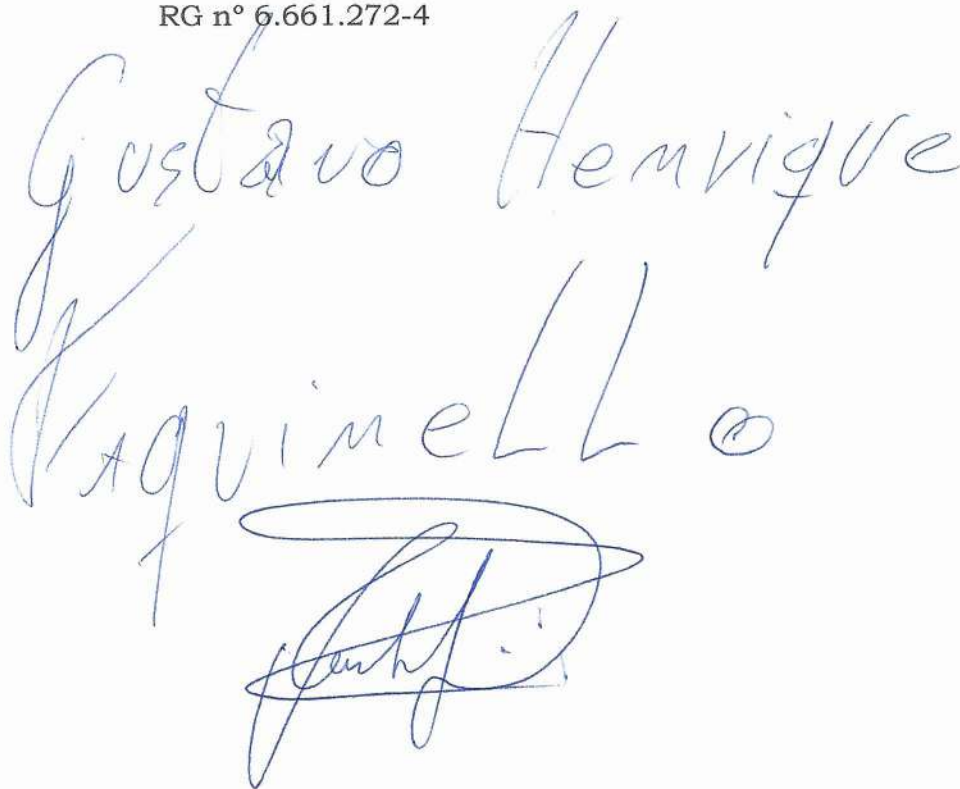 RG nº 6.661.272-4
Gustavo Henrique
Vaquinello